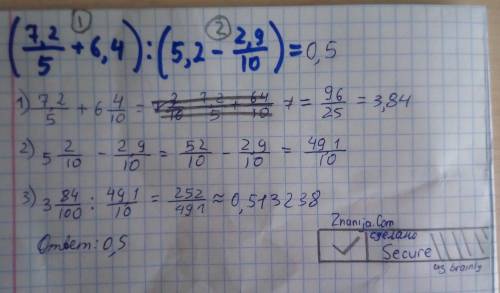 ① ②
(7,2/5 + 6,4) : (5,2 - 2,9/10) = 0,5
1) 7,2/5 + 6 4/10 = = 96/25 = 3,84
2) 5 2/10 - 2,9/10 = 52/10 - 2,9/10 = 49,1/10
3) 3 84/100 : 49,1/10 = 252/491 ≈ 0,513238
Ответ: 0,5
Znanija.Com
сделано
Secure
из brainly